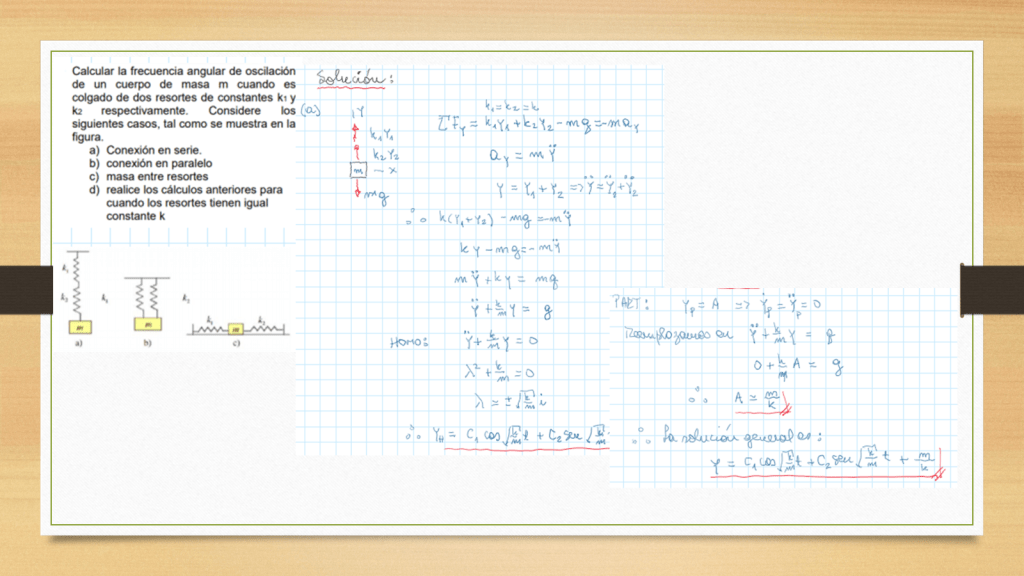 Calcular la frecuencia angular de oscilación
de un cuerpo de masa m cuando es
colgado de dos resortes de constantes k₁ y
k₂ respectivamente. Considere los
siguientes casos, tal como se muestra en la
figura.
a) Conexión en serie.
b) conexión en paralelo
c) masa entre resortes
d) realice los cálculos anteriores para
cuando los resortes tienen igual
constante k
k₁
k₂
m
k₁
k₂
m
k₁
m
k₂
a)
b)
c)
Solución:
(a)
Y
k₁Y₁
k₂Y₂
m
x
mg
k₁=k₂=k
ΣFy = k₁Y₁+k₂Y₂-mg=-may
ay = mŸ
Y = Y₁+Y₂ => Ÿ=Ÿ₁+Ÿ₂
∴ k(Y₁+Y₂) - mg =-mŸ
kY-mg=-mŸ
mŸ+kY = mg
Ÿ+k/m Y = g
HOMO: Ÿ+k/m Y = 0
λ²+k/m=0
λ = ±√k/m i
∴ YH = C₁ cos√k/m t + C₂ sen√k/m
PART: Yp = A => Ẏp=Ÿp=0
Reemplazamos en Ÿ+k/m Y = g
0+k/m A = g
∴ A = m/k
∴ La solución general es:
Y = C₁ cos√k/m t + C₂ sen√k/m t + m/k